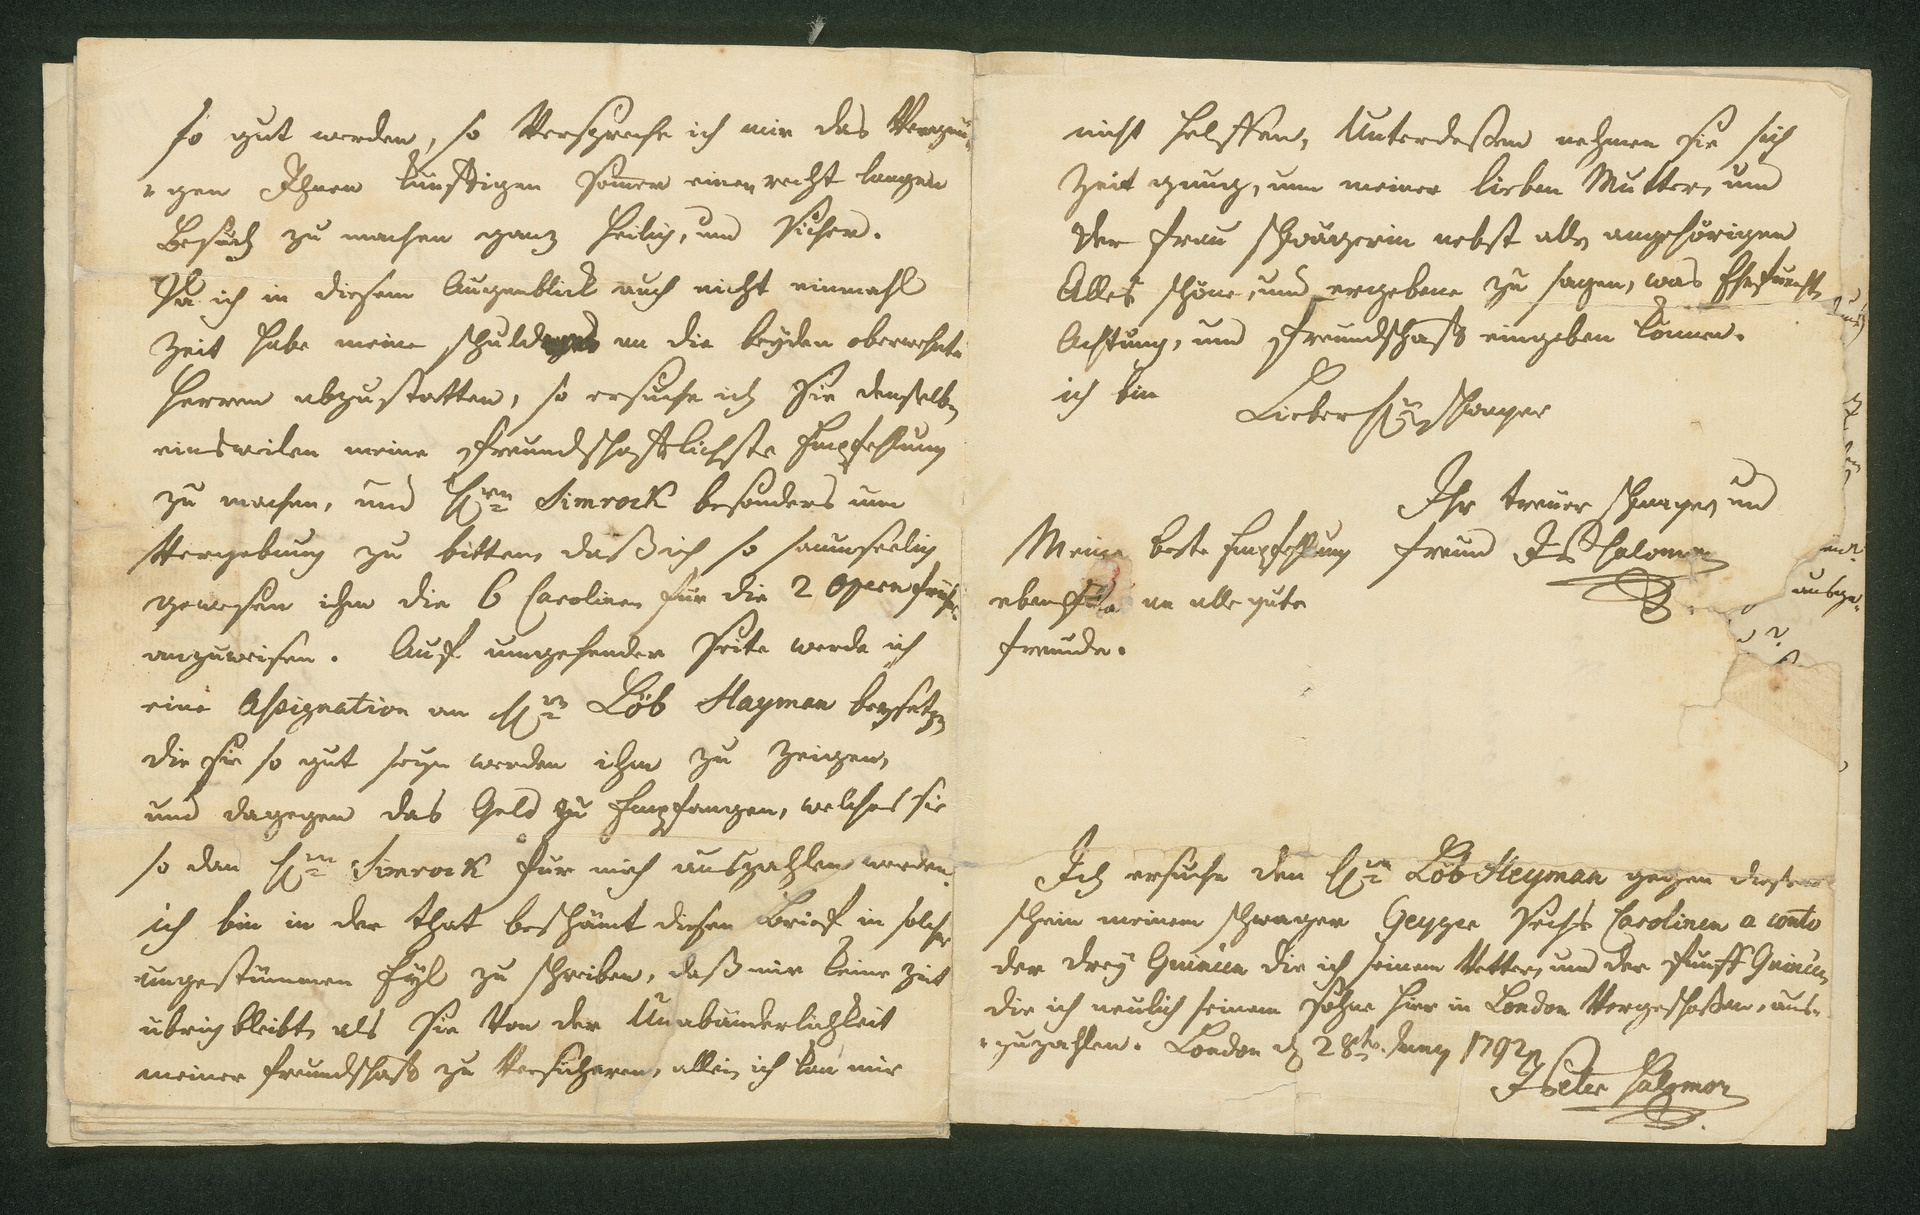 so gut werden, so Verspreche ich mir das Vergnü-
-gen Ihnen künfftigen Somer einen recht langen
Besuch zu machen ganz heilig, und sicher.
Da ich in diesem Augenblick auch nicht einmahl
Zeit habe meine schuld an die beyden oberwehnte
Herren abzustatten, so ersuche ich Sie denselben
einsweilen meine freundschafftlichste Empfehlung
zu machen, und Hrn Simrock besonders um
Vergebung zu bitten, daß ich so saumseelig
gewesen ihm die 6 Carolinen für die 2 Opern früher
anzuweisen. Auf umgehender Seite werde ich
eine Assignation an Hrn Löb Hayman beysetzen
die sie so gut seyn werden ihm zu zeigen,
und dagegen das Geld zu Empfangen, welches sie
so dan Hrn Simrock für mich auszahlen werden.
ich bin in der that beschämt diesen Brief in solcher
ungestümmen Eyl zu schreiben, daß mir keine Zeit
übrig bleibt, als Sie Von der Unabänderlichkeit
meiner freundschafft zu Versicheren, allein ich kan mir
nicht helffen, Unterdeßen nehmen sie sich
Zeit genug, um meiner lieben Mutter, und
der frau schwägerin nebst allen angehörigen
Alles schöne, und ergebene zu sagen, was Ehrfurcht,
Achtung, und freundschafft eingeben können.
ich bin Lieber Hr Schwager
Ihr treuer schwager und
freund JP Salomon
Meine beste Empfehlung
ebenfals an alle gute
freunde.
ausge-
Ich ersuche den Hrn Löb Heyman gegen diesen
schein meinem schwager Geyger Sechs Carolinen a conto
der drey Guineen die ich seinem Vetter, und der fünff Guineen
die ich neulich seinem Sohne hier in London Vorgeschoßen, aus-
-zuzahlen. London d 28ten Juny 1792
J Peter Salomon